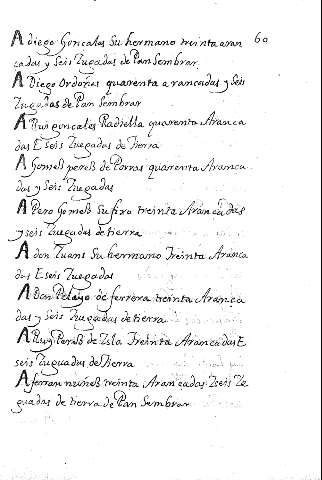 60
A diego Gonçales Su hermano treinta aran
cadas y Seis Yugadas de Pan Sembrar
A Diego Ordoñes quarenta arancadas y Seis
Yugadas de Pan Sembrar
A Rui gonçales Radiella quarenta Aranca
das E Seis Yugadas de tierra
A Gomes peres de Porras quarenta Aranca
das y Seis Yugadas
A Pero Gomes Su fixo treinta Arancadas
y seis Yugadas de tierra
A don Yuans Su hermano Treinta Aranca
das E seis Yugadas
A Don Pelayo de ferrera treinta Aranca
das y Seis Yugadas de tierra
A Ruy Peres de Isla Treinta Arancadas E
seis Yuguadas de Tierra
A ferran nuñes treinta Arancadas Iseis Yu
guadas de tierra de Pan Sembrar